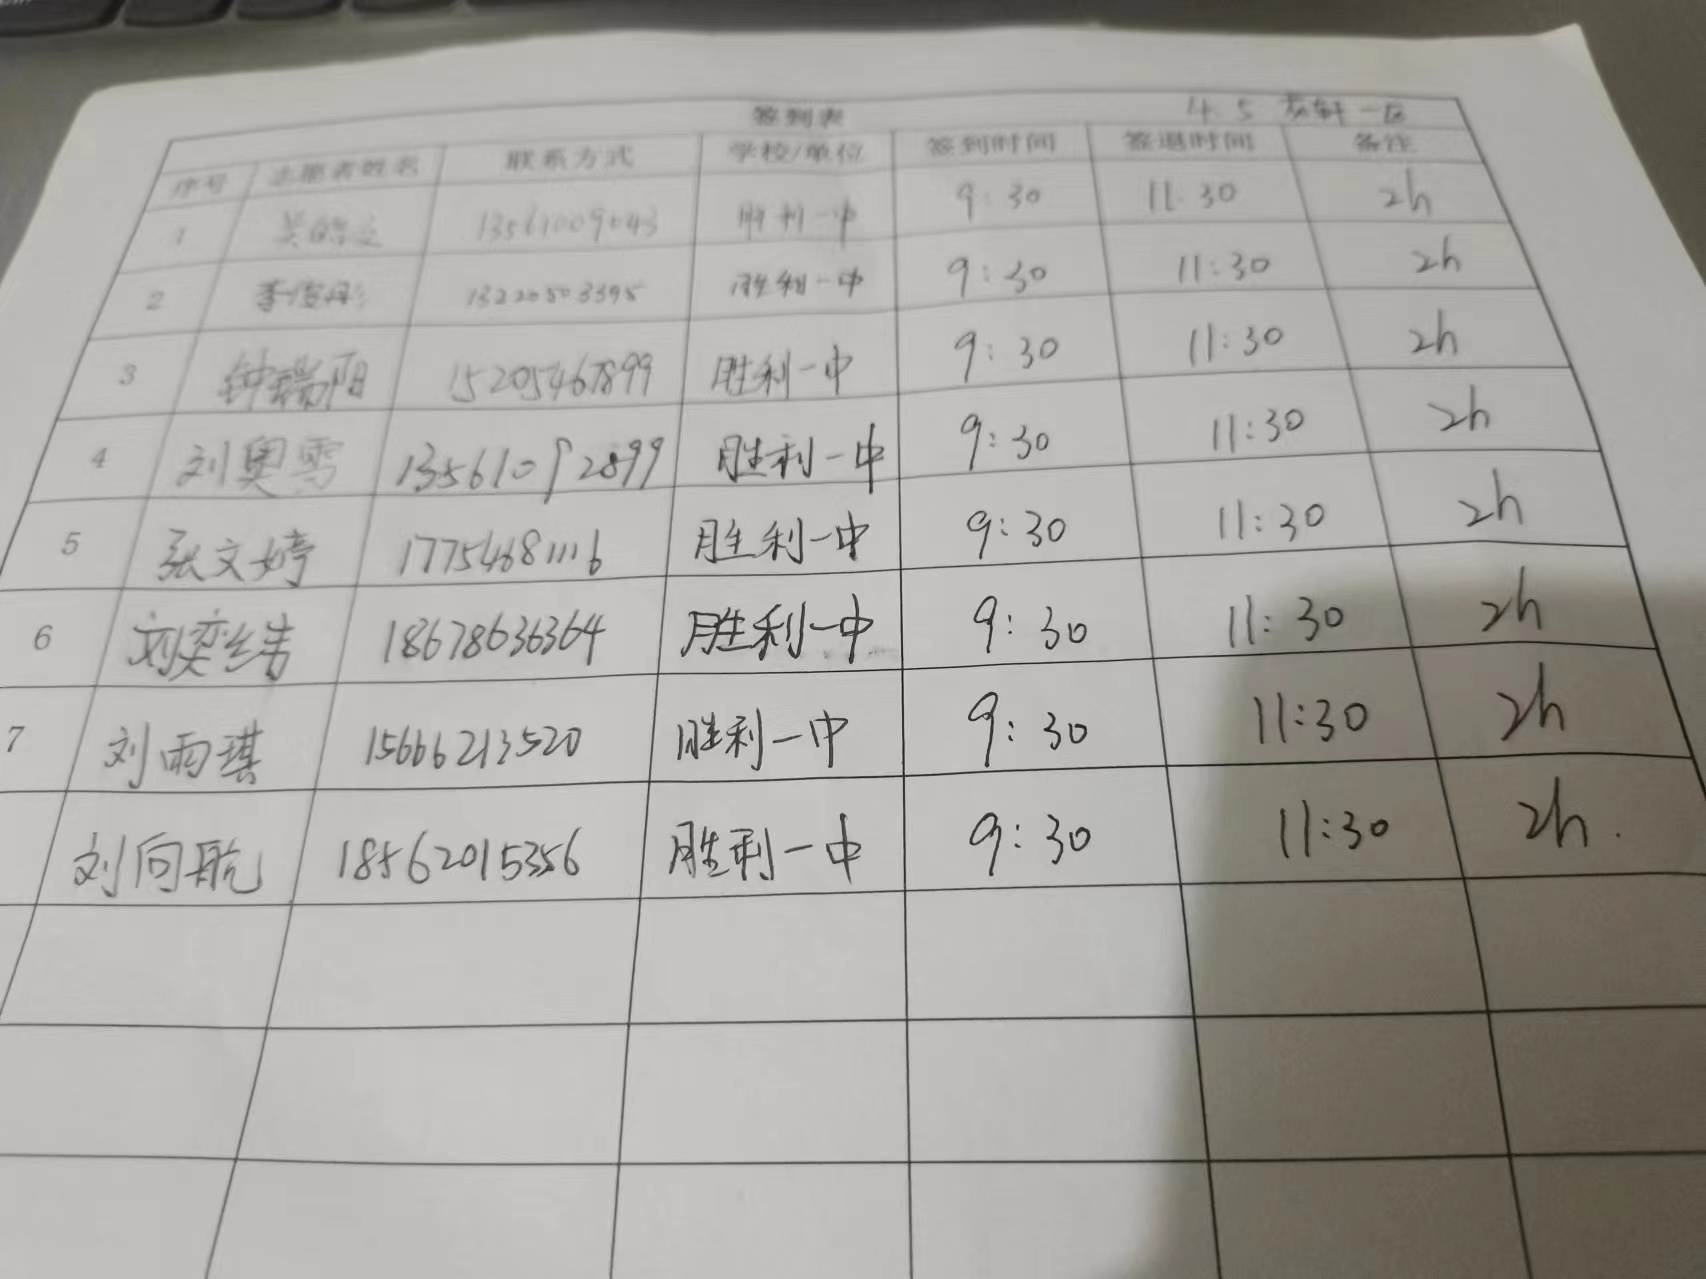 签到表 4.5 一区
序号 志愿者姓名 联系方式 学校/单位 签到时间 签退时间 备注
1 13561009043 胜利一中 9:30 11:30 2h
2 13220503395 胜利一中 9:30 11:30 2h
3 钟瑞阳 15205467899 胜利一中 9:30 11:30 2h
4 刘奥雪 13561092899 胜利一中 9:30 11:30 2h
5 张文婷 17754681116 胜利一中 9:30 11:30 2h
6 刘奕纬 18678636364 胜利一中 9:30 11:30 2h
7 刘雨琪 15666213520 胜利一中 9:30 11:30 2h
刘向航 18562015356 胜利一中 9:30 11:30 2h.